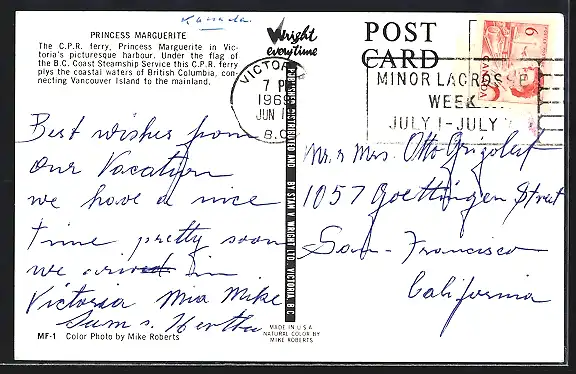 Kanada.
PRINCESS MARGUERITE
The C.P.R. ferry, Princess Marguerite in Vic-
toria's picturesque harbour. Under the flag of
the B.C. Coast Steamship Service this C.P.R. ferry
plys the coastal waters of British Columbia, con-
necting Vancouver Island to the mainland.
Wright
everytime
POST
CARD
CANADA
6
VICTORIA
7 PM
1969
JUN 1
B.C.
MINOR LACROSSE
WEEK
JULY 1-JULY
Best wishes from
our Vacation
we have a nice
time pretty soon
we in
Victoria Mia Mike
Sum s. Hertha
Mr. & Mrs. Otto Grigoleit
1057 Goettingen Street
San-Francisco
California
PUBLISHED DISTRIBUTED AND BY STAN V. WRIGHT LTD. VICTORIA, B.C.
MADE IN U.S.A.
NATURAL COLOR BY
MIKE ROBERTS
MF-1 Color Photo by Mike Roberts